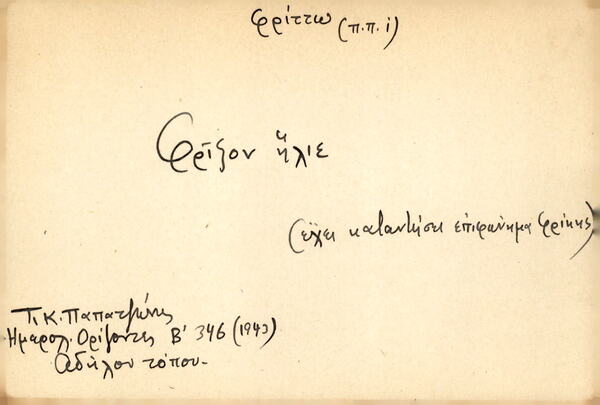 φρίττω (π.π. i)
Φρῖξον ἥλιε
(ἔχει καταντήσει ἐπιφώνημα φρίκης)
Τ.Κ. Παπατζώνης
Ημερολ. Ορίζοντες Β' 346 (1943)
Αδήλου τόπου-